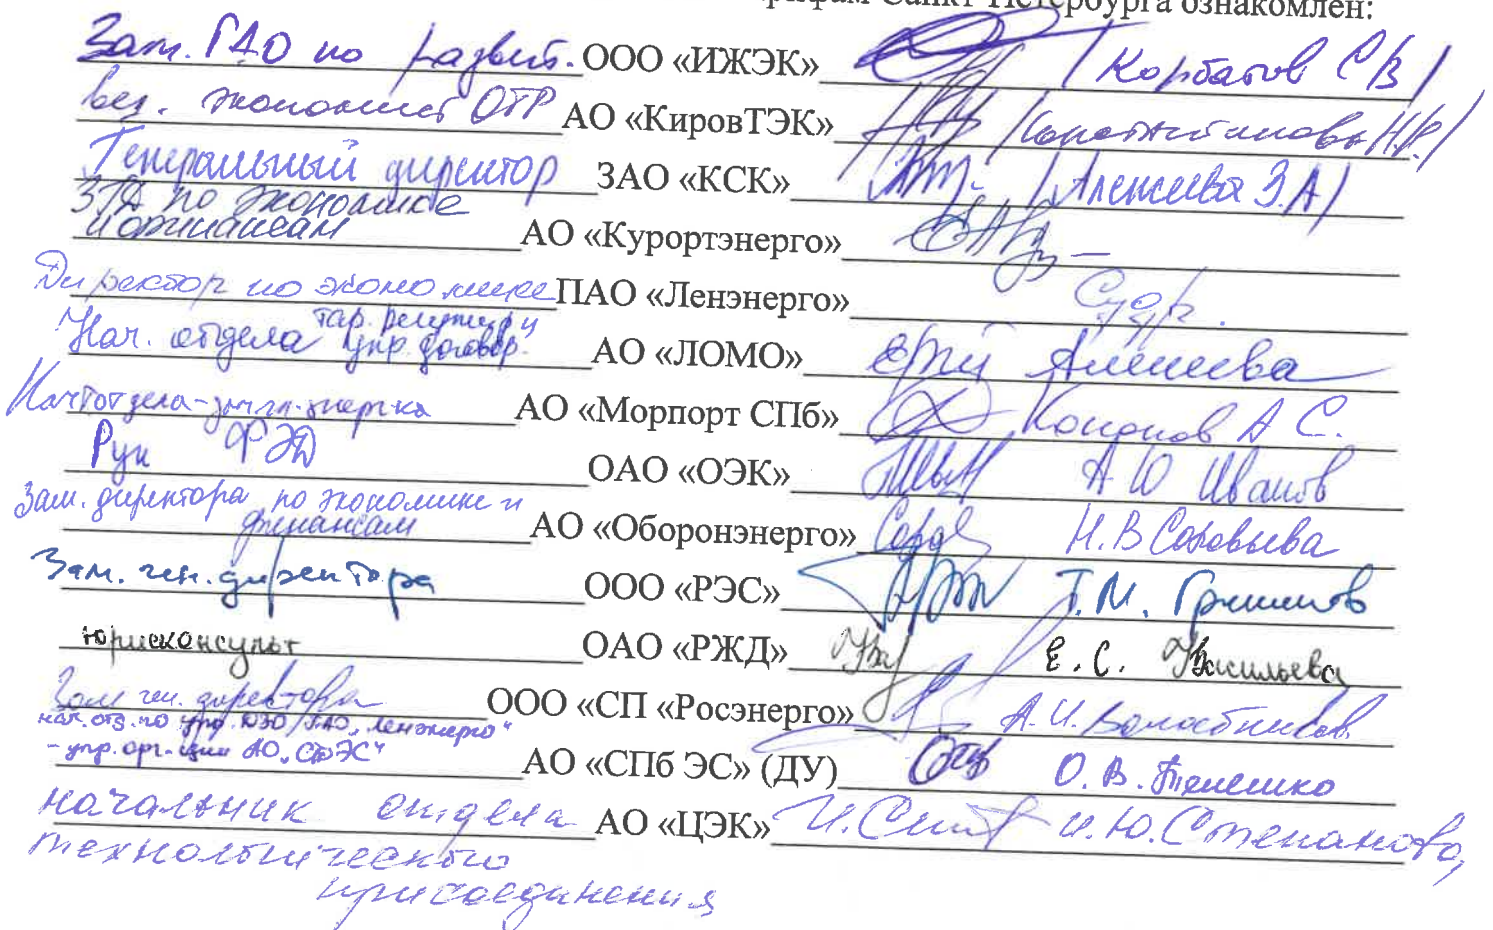 тарифам Санкт-Петербурга ознакомлен:
Зам. ГДО по развит. ООО «ИЖЭК» / Корбатов С В /
вед. экономист ОТР АО «КировТЭК»
Генеральный директор ЗАО «КСК» / Алексеева З.А /
ЗГД по экономике
и финансам АО «Курортэнерго»
Директор по экономике ПАО «Ленэнерго»
Нач. отдела тар. регулир. и
упр. договор. АО «ЛОМО» Алексеева
АО «Морпорт СПб» Кононов А С.
Рук ФЭД ОАО «ОЭК» А Ю Иванов
Зам. директора по экономике и
финансам АО «Оборонэнерго» Н.В Соловьева
Зам. ген. директора ООО «РЭС» Т.М.
юрисконсульт ОАО «РЖД» Е.С. Васильева
Зам ген. директора ООО «СП «Росэнерго» А.И.
нач. отд. по упр. ЮЗО ПАО „Ленэнерго“
- упр. орг-ции АО „СПбЭС“ АО «СПб ЭС» (ДУ) О.В. Телешко
начальник отдела АО «ЦЭК» И.Ю. Степанова,
технологического
присоединения